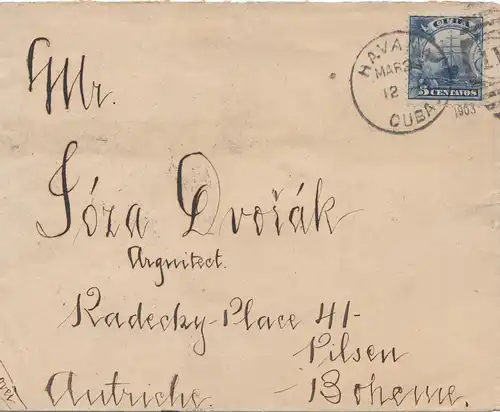 CUBA
5 CENTAVOS
HAVANA
MAR 2
12
CUBA
1903
Mr.
Józa Dvořák
Arquitect.
Radecky-Place 41-
Pilsen
Autriche. Boheme.